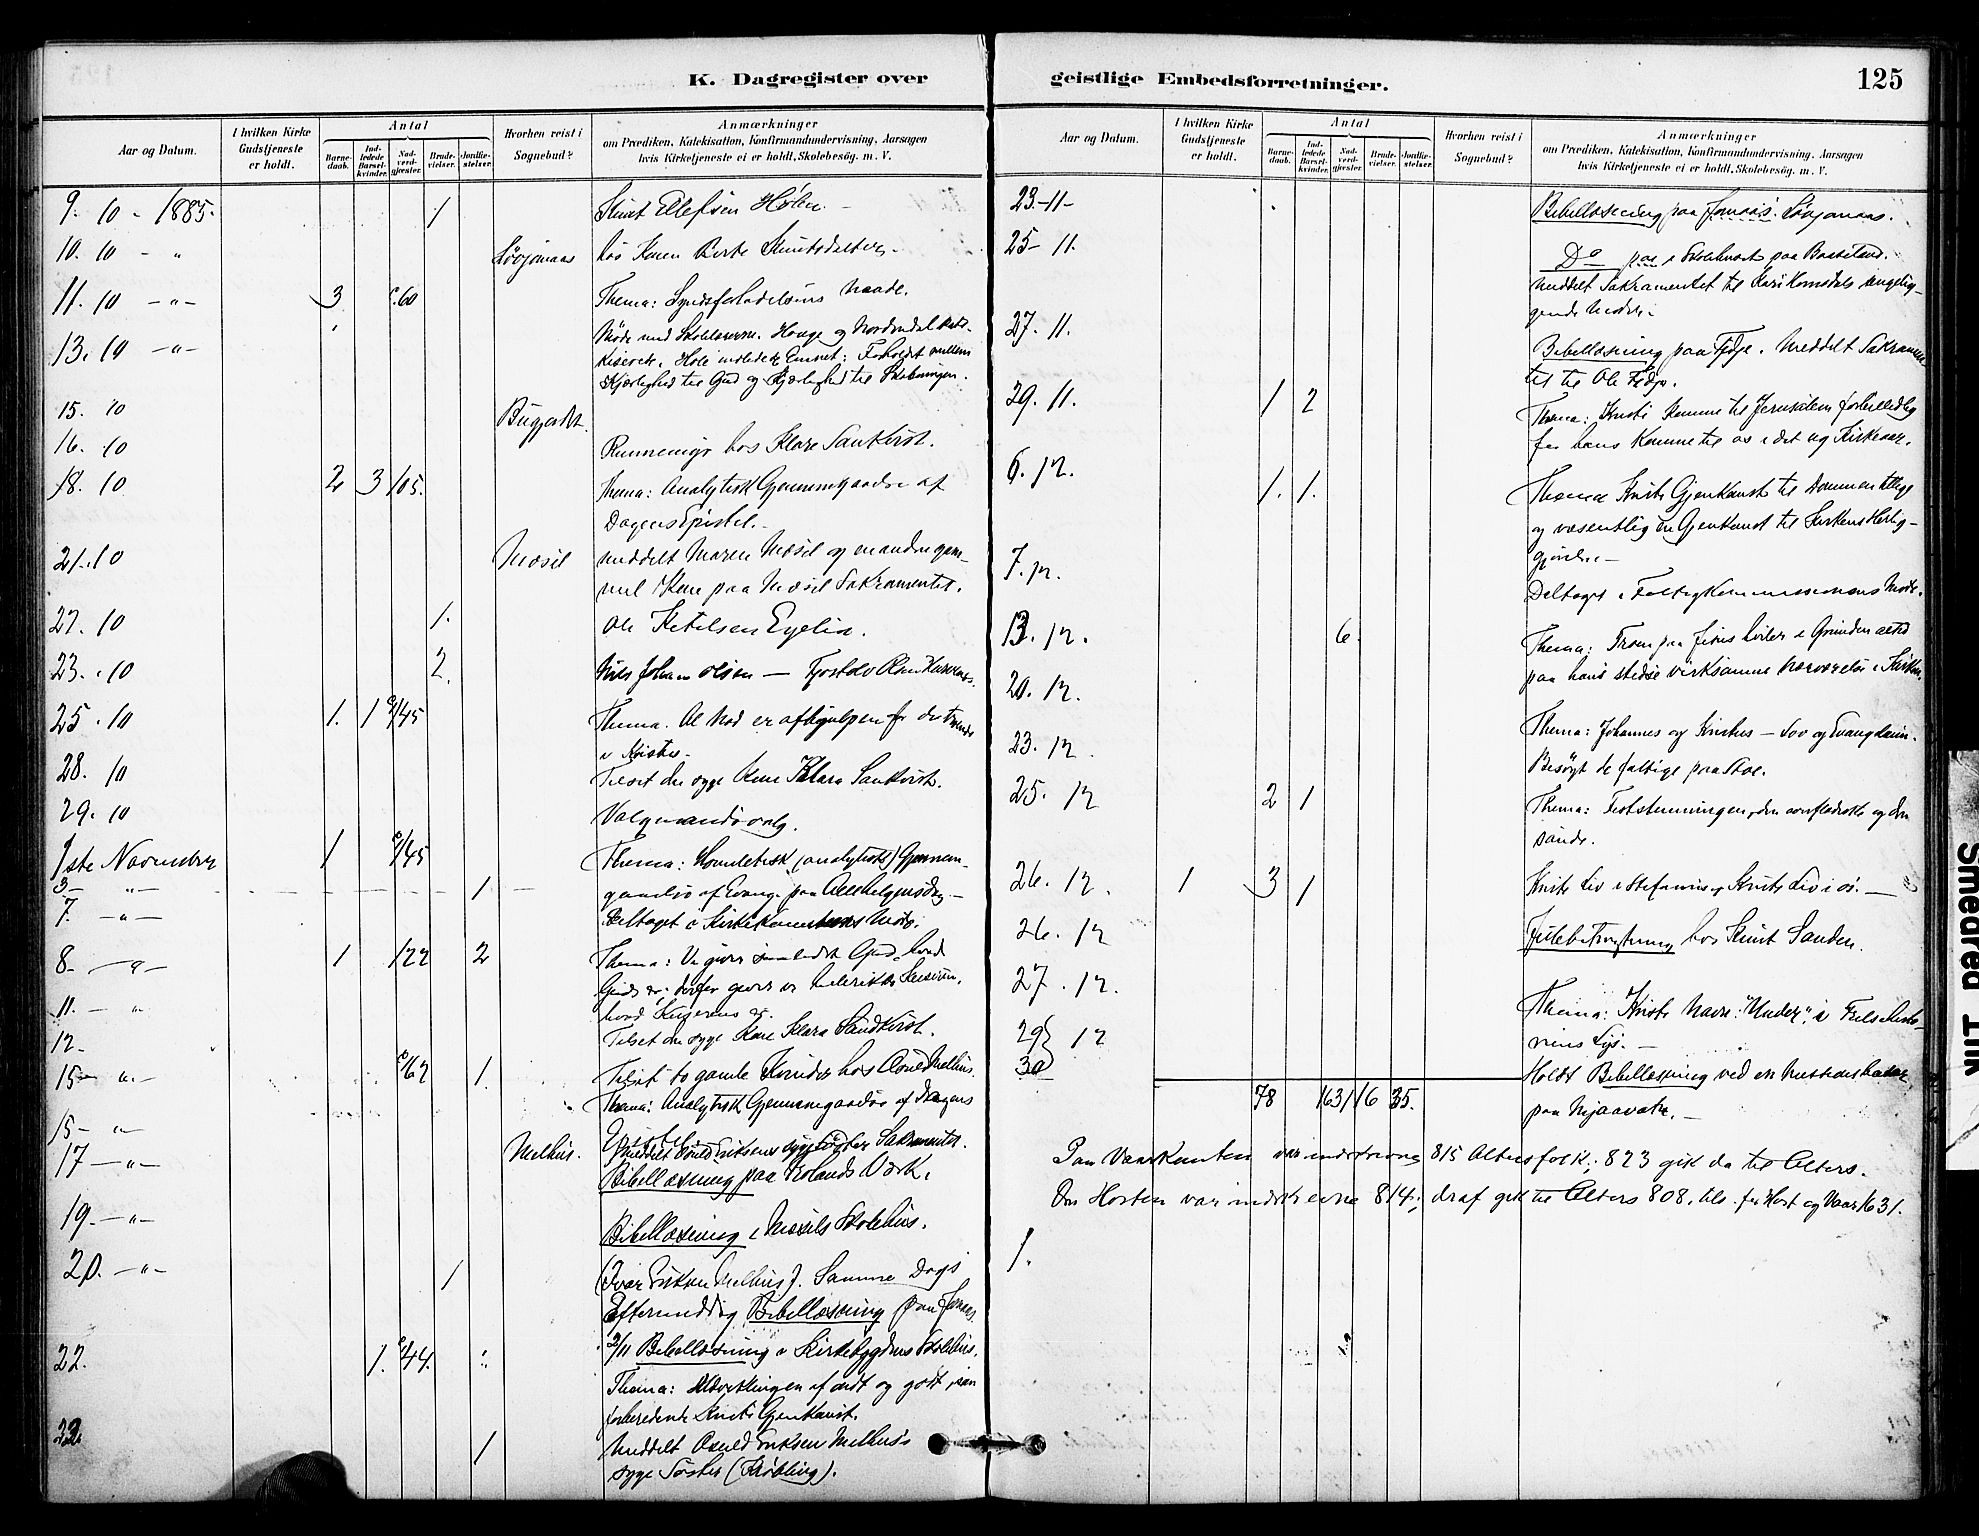 K. Dagregister over
Aar og Datum.
I hvilken Kirke Gudstjeneste er holdt.
Antal
Barne-daab.
Ind-ledede Barsel-kvinder.
Nad-verd-gjæster.
Brude-vielser.
Jordfæ-stelser.
Hvorhen reist i Sognebud?
Anmærkninger
om Prædiken, Katekisation, Konfirmandundervisning, Aarsagen
hvis Kirketjeneste ei er holdt, Skolebesøg. m. V.
9. 10 - 1885. 1 Knut Ellefsen Hølen.
10. 10 - " hos Karen Berte Knutsdatter
11. 10 - " - 3 60 Thema: Syndsforladelsens Naade.
13. 10 - " - Møde med Skolelærerne. Hauge og Nordendal
Emnet: Forholdet mellem
Kjærlighed til Gud og Kjærlighed til Skabningen.
15. 10
16. 10 hos Klara Sankvist.
18. 10 2 3 105. Thema: Analytisk Gjennemgaaelse af
Dagens Epistel.
21. 10 Næsil meddelt Maren Næsil og en anden gam-
mel Kone paa Næsil Sakramentet.
27. 10 1. Ole Ketilsen Egelia.
23. 10 2. Nils Johan Olsen —
25. 10 1. 1 145 Thema. Al Nød er afhjulpen for de troende
i Kristus.
28. 10 Tilset den syge Kone Klara Sankvist.
29. 10 Valgmandsvalg.
1ste November 1 145 Thema: Homiletisk (analytisk) Gjennem-
3 - " - 1 gaaelse af Evang. paa Allehelgensdag.
7. - " - Deltaget i Møde.
8 - " - 1 122 2 Thema: Vi giver Gud, hvad
Guds er; derfor giver vi
11. - " hvad Keiserens er.
12 - Tilset den syge Kone Klara Sandkvist.
15 - " - 62 1. Tilset to gamle Kvinder hos Melhus.
Thema: Analytisk Gjennemgaaelse af Dagens
15 - " Epistel.
17 - " - Melhus. Meddelt Eriksens syge Søster Sakramentet.
Bibellæsning paa Værk.
19. - " - Bibellæsning i Næsils Skolehus.
20. - " - 1 (Ivar Eriksen Melhus). Samme Dags
Eftermiddag Bibellæsning paa Jomaas.
22. 1. 44. Bibellæsning i Kirkebygdens Skolehus.
Thema: Udviklingen af ondt og godt, som
forberedende Kristi Gjenkomst.
23 1 Meddelt Eriksen Melhus's
syge Søster
geistlige Embedsforretninger.
125
Aar og Datum.
I hvilken Kirke Gudstjeneste er holdt.
Antal
Barne-daab.
Ind-ledede Barsel-kvinder.
Nad-verd-gjæster.
Brude-vielser.
Jordfæ-stelser.
Hvorhen reist i Sognebud?
Anmærkninger
om Prædiken, Katekisation, Konfirmandundervisning, Aarsagen
hvis Kirketjeneste ei er holdt, Skolebesøg. m. V.
23. - 11 - Bibellæsning paa Jomaas.
25 - 11. Do paa
meddelt Sakramentet til Kari Komsdals sengelig-
gende Moder.
27. 11. Bibellæsning paa Fidje. Meddelt Sakramen-
tet til Ole Fidje.
29. 11. 1 2 Thema: Kristi Komme til Jerusalem forbilledlig
for hans Komme til os i det ny Kirkeaar.
6. 12. 1. 1. Thema Kristi Gjenkomst til Dommen tillige
og væsentlig en Gjenkomst til Kirkens Herlig-
gjørelse
7. 12. Deltaget i Fattigkommissionens Møde.
13. 12. 6. Thema: Troen paa Jesus hviler i Grunden altid
paa hans stedse virksomme Nærværelse i Kirken.
20. 12. Thema: Johannes og Kristus — Lov og Evangelium.
23. 12. Besøgt de fattige paa Stoe.
25. 12 2 1 Thema: Feststemningen, den overfladiske og den
sande.
26. 12. 1 3 1 Kristi Liv i Stefanus og Kristi Liv i os. —
26. 12 Julebetragtning hos Knut Sanden.
27. 12. Thema: Kristi Navn: "Under", i
Lys. —
29 } 12
30 } Holdt Bibellæsning ved en
paa Mjaavatn. —
78 163 1 16 35.
Paa Vaarkanten var indskrevne 815 Altersfolk; 823 gik da til Alters.
Om Høsten var indskrevne 814; deraf gik til Alters 808, tils. for Høst og Vaar 1631.
1.
Smeared Ink